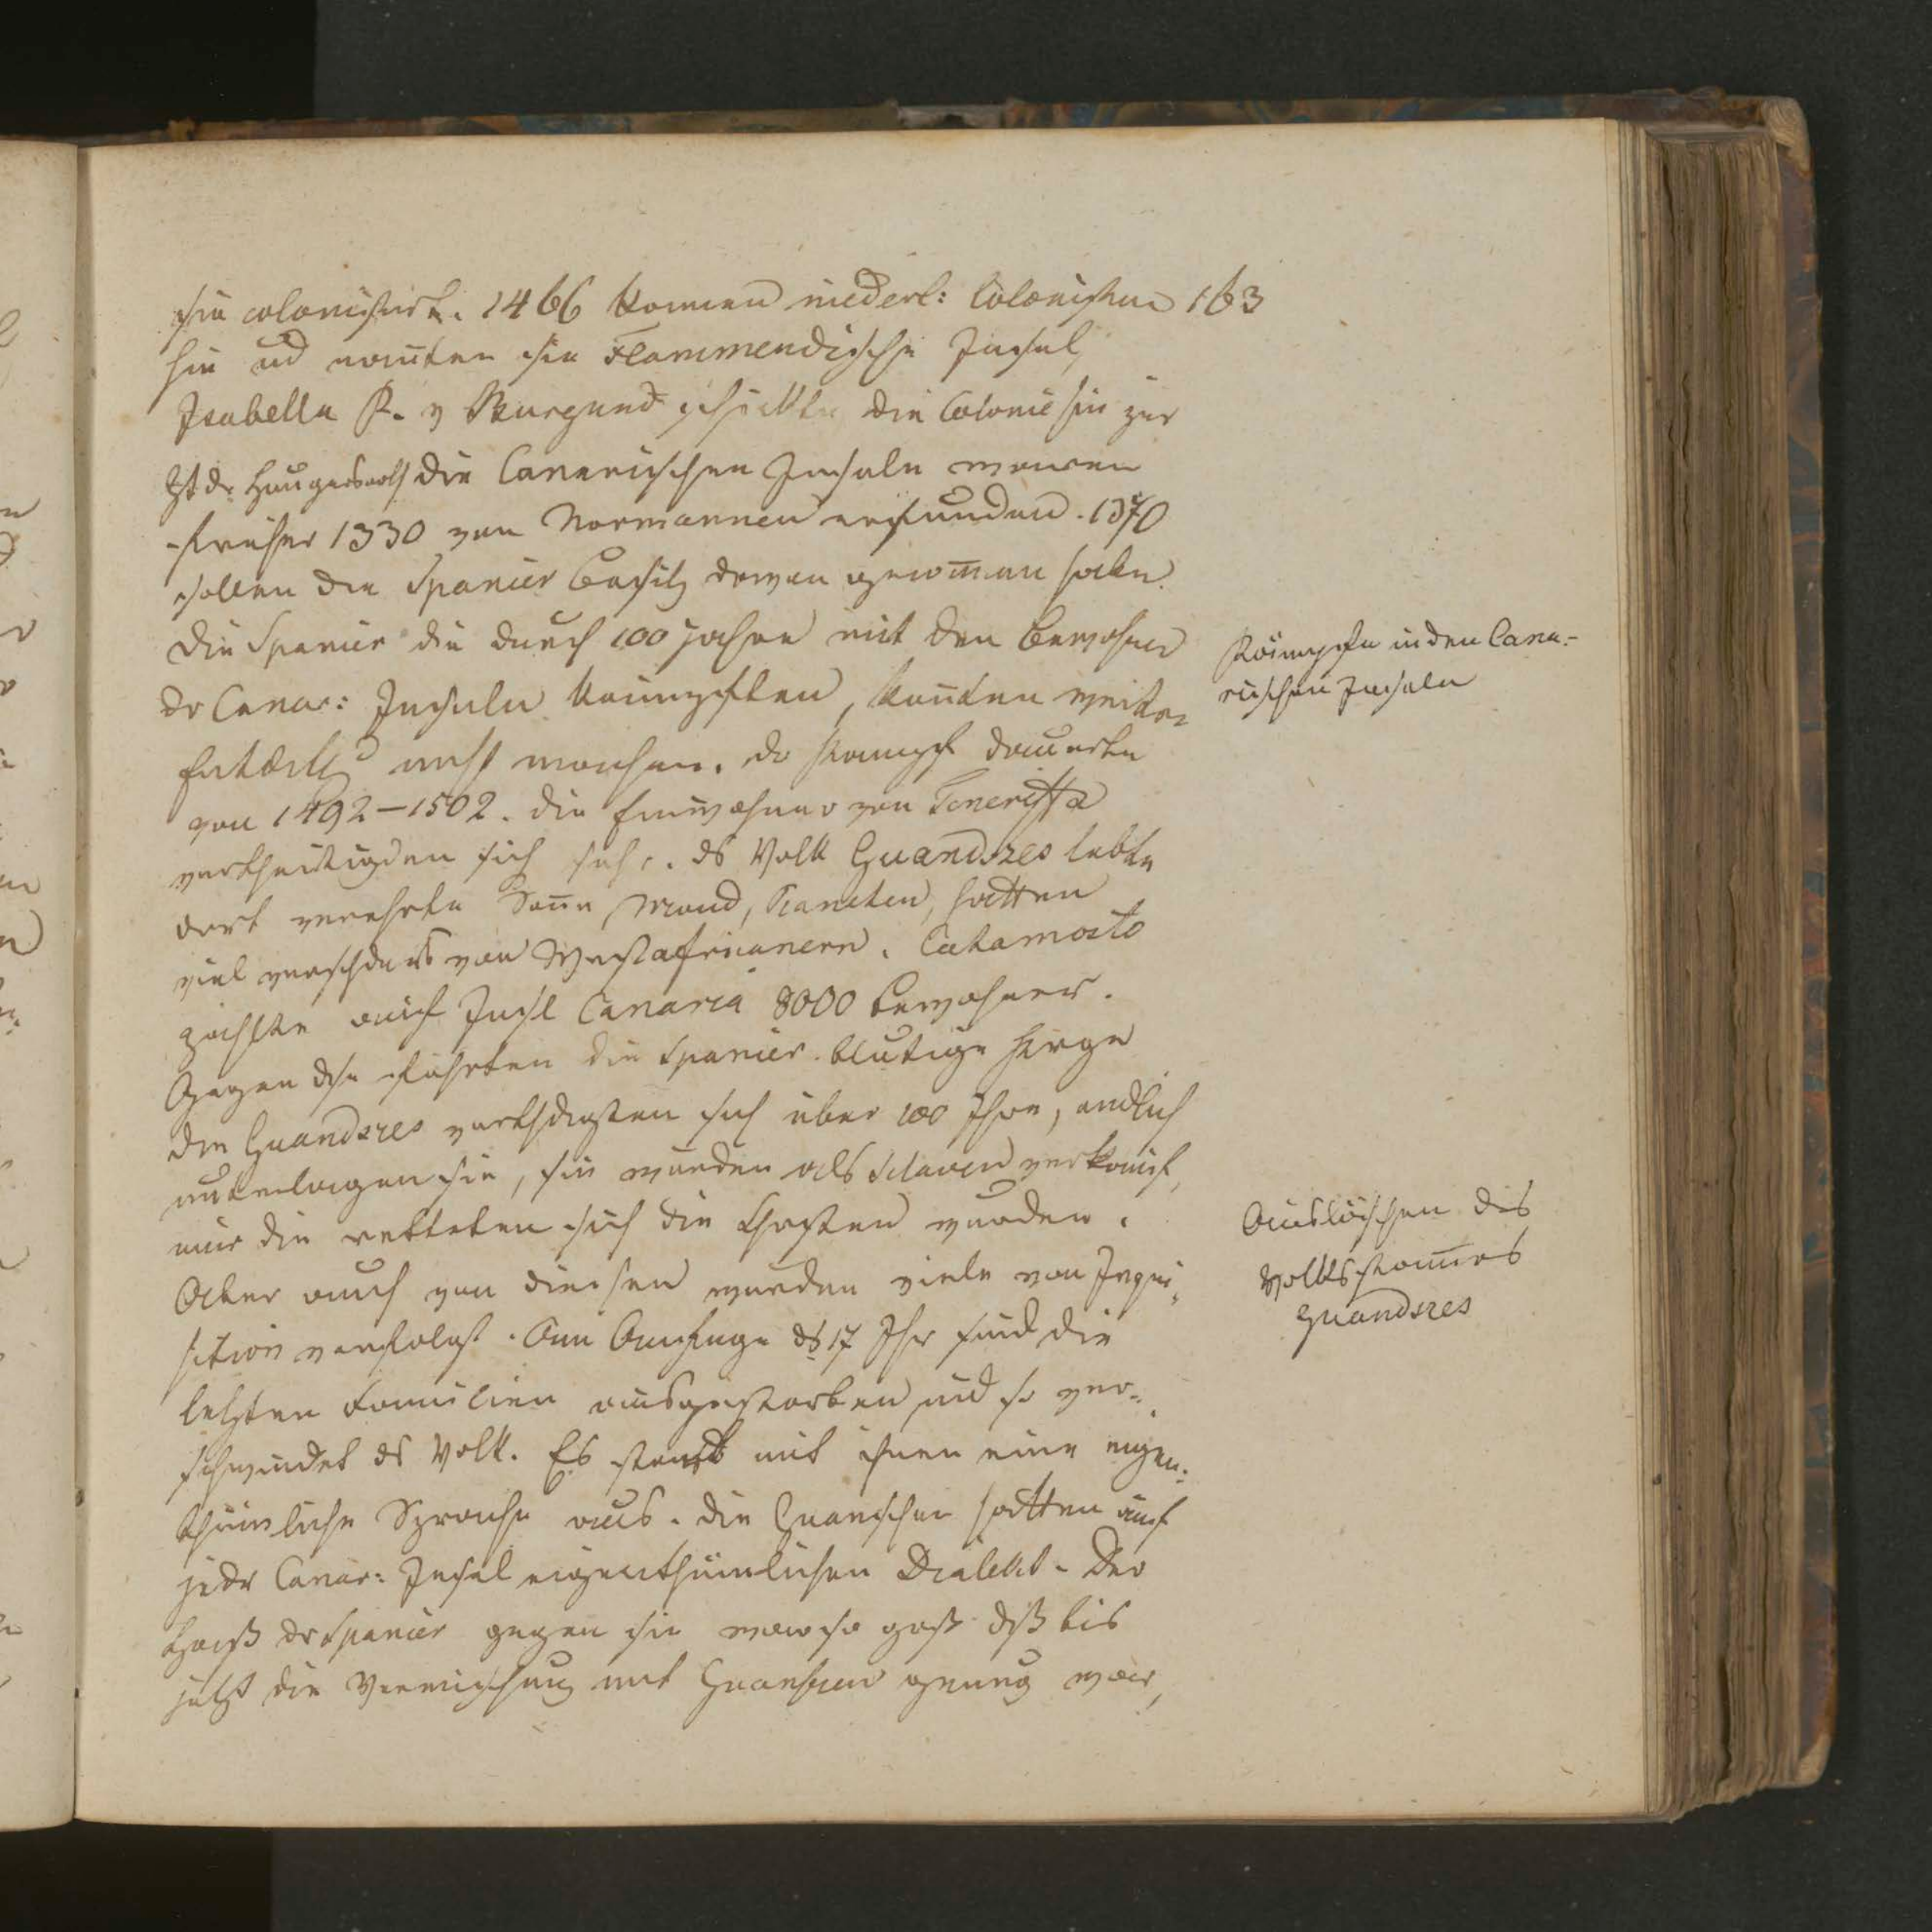 sie colonisirt. 1466 kamen niederl: Colonisten 163
hin ud nan̅ten sie Flammendische Insel,
Isabella P. v Burgund schickte die Colonie hin zur
Zt dr Hungersnoth die Canarischen Inseln waren
früher 1330 von Normannen erfunden. 1370
sollen die Spanier Besitz davon genom̅en haben.
Die Spanier die durch 100 Jahre mit den Bewohner
dr Canar: Inseln kämpften, kon̅ten weitere
nicht machen. dr Kampf dauerte
von 1492–1502. die Einwohner von Teneriffa
vertheidigden sich sehr. ds Volk Guandszes lebte
dort verehrte Son̅e, Mond, Planeten, hatten
viel verschdnes von Westafricanern. Catamosto
zählte auf Insl Canaria 8000 Bewohner.
Gegen dse führten die Spanier blutige Krige
die Guandszes verthdigten sich über 100 Jhre, endlich
unterlagen sie, sie wurden als Sclaven verkauft,
nur die retteten sich die Christen wurden.
Aber auch von diesen wurden viele von Inqui-
sition verfolgt. Am Anfange ds 17 Jhr sind die
letzten Familien ausgestorben und so ver-
schwindet ds Volk. Es starb mit ihnen eine eigen-
thümliche Sprache aus. die Guanschen hatten auf
jedr Canar: Insel eigenthümlichen Dialekt. Der
Haß dr Spanier gegen sie war so groß dß bis
jetzt die Vermischung mit Guanschen gering war,
Kämpfe in den Cana-
rischen Inseln
Auslöschen des
Volksstam̅es
Guandszes